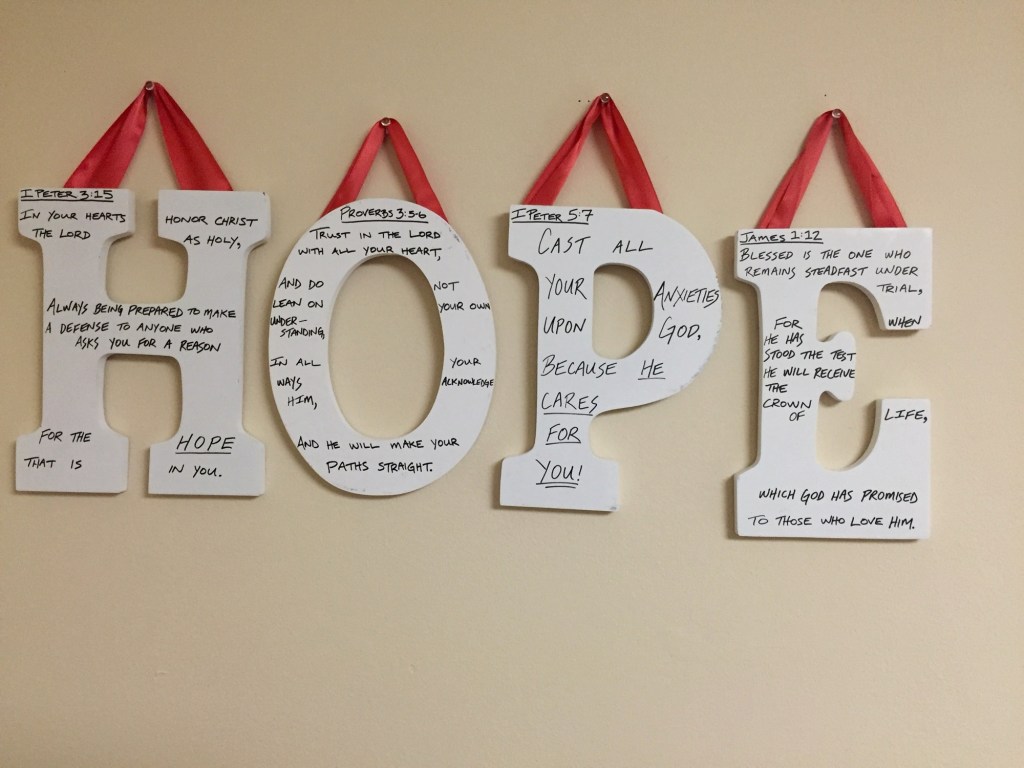 HOPE
I PETER 3:15
IN YOUR HEARTS HONOR CHRIST
THE LORD AS HOLY,
ALWAYS BEING PREPARED TO MAKE
A DEFENSE TO ANYONE WHO
ASKS YOU FOR A REASON
FOR THE HOPE
THAT IS IN YOU.
PROVERBS 3:5-6
TRUST IN THE LORD
WITH ALL YOUR HEART,
AND DO NOT
LEAN ON YOUR OWN
UNDER-
STANDING,
IN ALL YOUR
WAYS ACKNOWLEDGE
HIM,
AND HE WILL MAKE YOUR
PATHS STRAIGHT.
I PETER 5:7
CAST ALL
YOUR ANXIETIES
UPON GOD,
BECAUSE HE
CARES
FOR
YOU!
JAMES 1:12
BLESSED IS THE ONE WHO
REMAINS STEADFAST UNDER
TRIAL,
FOR WHEN
HE HAS
STOOD THE TEST
HE WILL RECEIVE
THE
CROWN
OF LIFE,
WHICH GOD HAS PROMISED
TO THOSE WHO LOVE HIM.